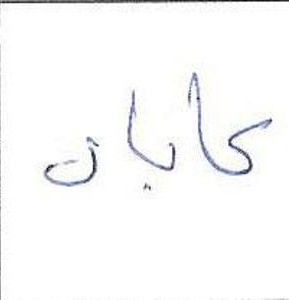 کابان